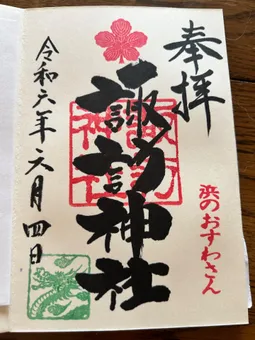 奉拝
浜のおすわさん
諏訪神社
諏訪神社
令和六年六月四日